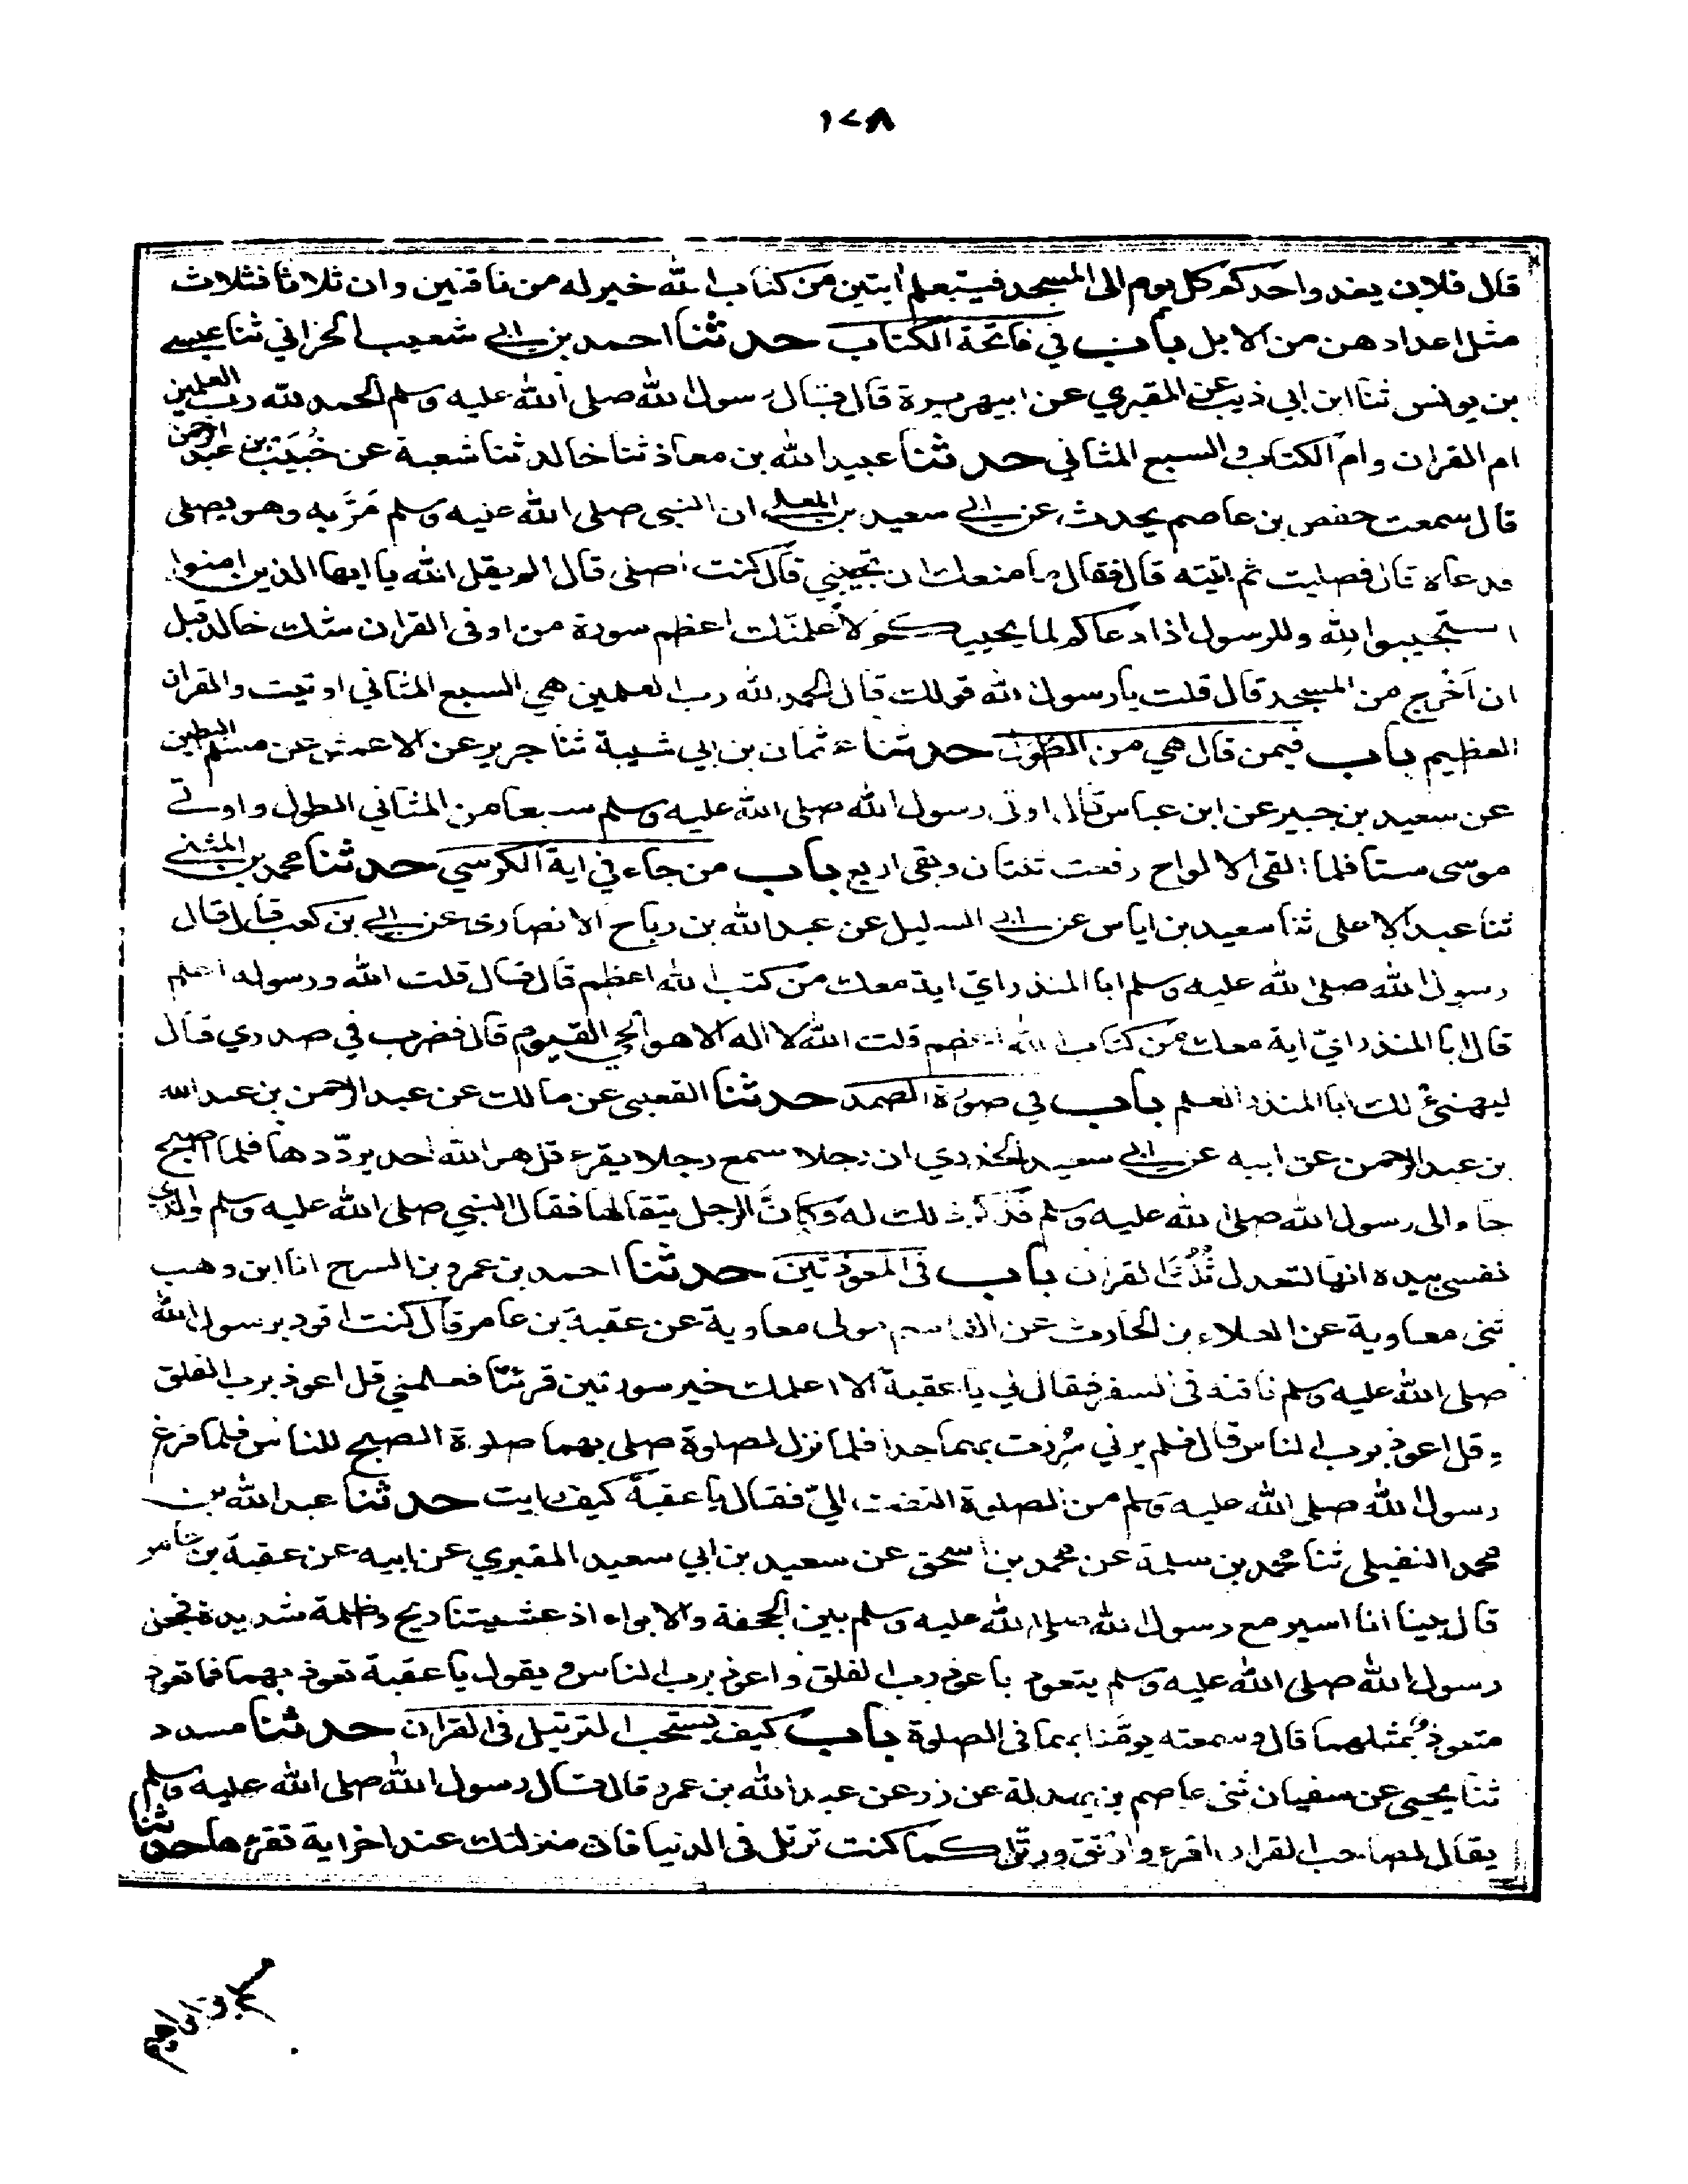 ١٢٨
قال فلان يغدو احدكم كل يوم الى المسجد فيتعلم ايتين من كتاب الله خير له من ناقتين وان ثلاثا فثلاث
مثل اعدادهن من الابل باب في فاتحة الكتاب حدثنا احمد بن ابي شعيب الحراني ثنا عيسى
بن يونس ثنا ابن ابي ذيب عن المقبري عن ابي هريرة قال قال رسول الله صلى الله عليه وسلم الحمد لله رب العلمين
ام القران وام الكتاب والسبع المثاني حدثنا عبيد الله بن معاذ ثنا خالد ثنا شعبة عن خبيب بن عبد الرحمن
قال سمعت حفص بن عاصم يحدث عن ابي سعيد بن المعلى ان النبي صلى الله عليه وسلم مر به وهو يصلى
فدعاه قال فصليت ثم اتيته قال فقال ما منعك ان تجيبني قال كنت اصلى قال الم يقل الله يا ايها الذين امنوا
استجيبوا لله وللرسول اذا دعاكم لما يحييكم لاعلمنك اعظم سورة من او في القران شك خالد قبل
ان اخرج من المسجد قال قلت يا رسول الله قولك قال الحمد لله رب العلمين هي السبع المثاني اوتيت والقران
العظيم باب فيمن قال هي من الطول حدثنا عثمان بن ابي شيبة ثنا جرير عن الاعمش عن مسلم البطين
عن سعيد بن جبير عن ابن عباس قال اوتى رسول الله صلى الله عليه وسلم سبعا من المثاني الطول واوتى
موسى ستا فلما القى الالواح رفعت ثنتان وبقى اربع باب من جاء في اية الكرسي حدثنا محمد بن المثنى
ثنا عبد الاعلى ثنا سعيد بن اياس عن ابي السليل عن عبد الله بن رباح الانصارى عن ابي بن كعب قال قال
رسول الله صلى الله عليه وسلم ابا المنذر اي اية معك من كتب الله اعظم قال قال قلت الله ورسوله اعلم
قال ابا المنذر اي اية معك من كتاب الله اعظم قلت الله لا اله الا هو الحي القيوم قال فضرب في صدري قال
ليهنئ لك ابا المنذر العلم باب في صورة الصمد حدثنا القعنبى عن مالك عن عبد الرحمن بن عبد الله
بن عبد الرحمن عن ابيه عن ابي سعيد الخدري ان رجلا سمع رجلا يقرء قل هو الله احد يرددها فلما اصبح
جاء الى رسول الله صلى الله عليه وسلم فذكر ذلك له وكان الرجل يتقالها فقال النبي صلى الله عليه وسلم والذي
نفسي بيده انها لتعدل ثلث القران باب في المعوذتين حدثنا احمد بن عمرو بن السرح انا ابن وهب
ثنى معاوية عن العلاء بن الحارث عن القاسم مولى معاوية عن عقبة بن عامر قال كنت اقود برسول الله
صلى الله عليه وسلم ناقته في السفر فقال لي يا عقبة الا اعلمك خير سورتين قرئتا فعلمني قل اعوذ برب الفلق
وقل اعوذ برب الناس قال فلم يرني سررت بهما جدا فلما نزل لصلوة صلى بهما صلوة الصبح للناس فلما فرغ
رسول الله صلى الله عليه وسلم من الصلوة التفت الي فقال يا عقبة كيف رايت حدثنا عبد الله بن
محمد النفيلى ثنا محمد بن سلمة عن محمد بن اسحق عن سعيد بن ابي سعيد المقبري عن ابيه عن عقبة بن عامر
قال بينا انا اسير مع رسول الله صلى الله عليه وسلم بين الجحفة والابواء اذ غشيتنا ريح وظلمة شديدة فجعل
رسول الله صلى الله عليه وسلم يتعوذ باعوذ برب الفلق واعوذ برب الناس ويقول يا عقبة تعوذ بهما فما تعوذ
متعوذ بمثلهما قال وسمعته يومنا بهما في الصلوة باب كيف يستحب الترتيل في القران حدثنا مسدد
ثنا يحيى عن سفيان ثنى عاصم بن بهدلة عن زر عن عبد الله بن عمرو قال قال رسول الله صلى الله عليه وسلم
يقال لصاحب القران اقرء وارتق ورتل كما كنت ترتل في الدنيا فان منزلتك عند اخر اية تقرءها حدثنا